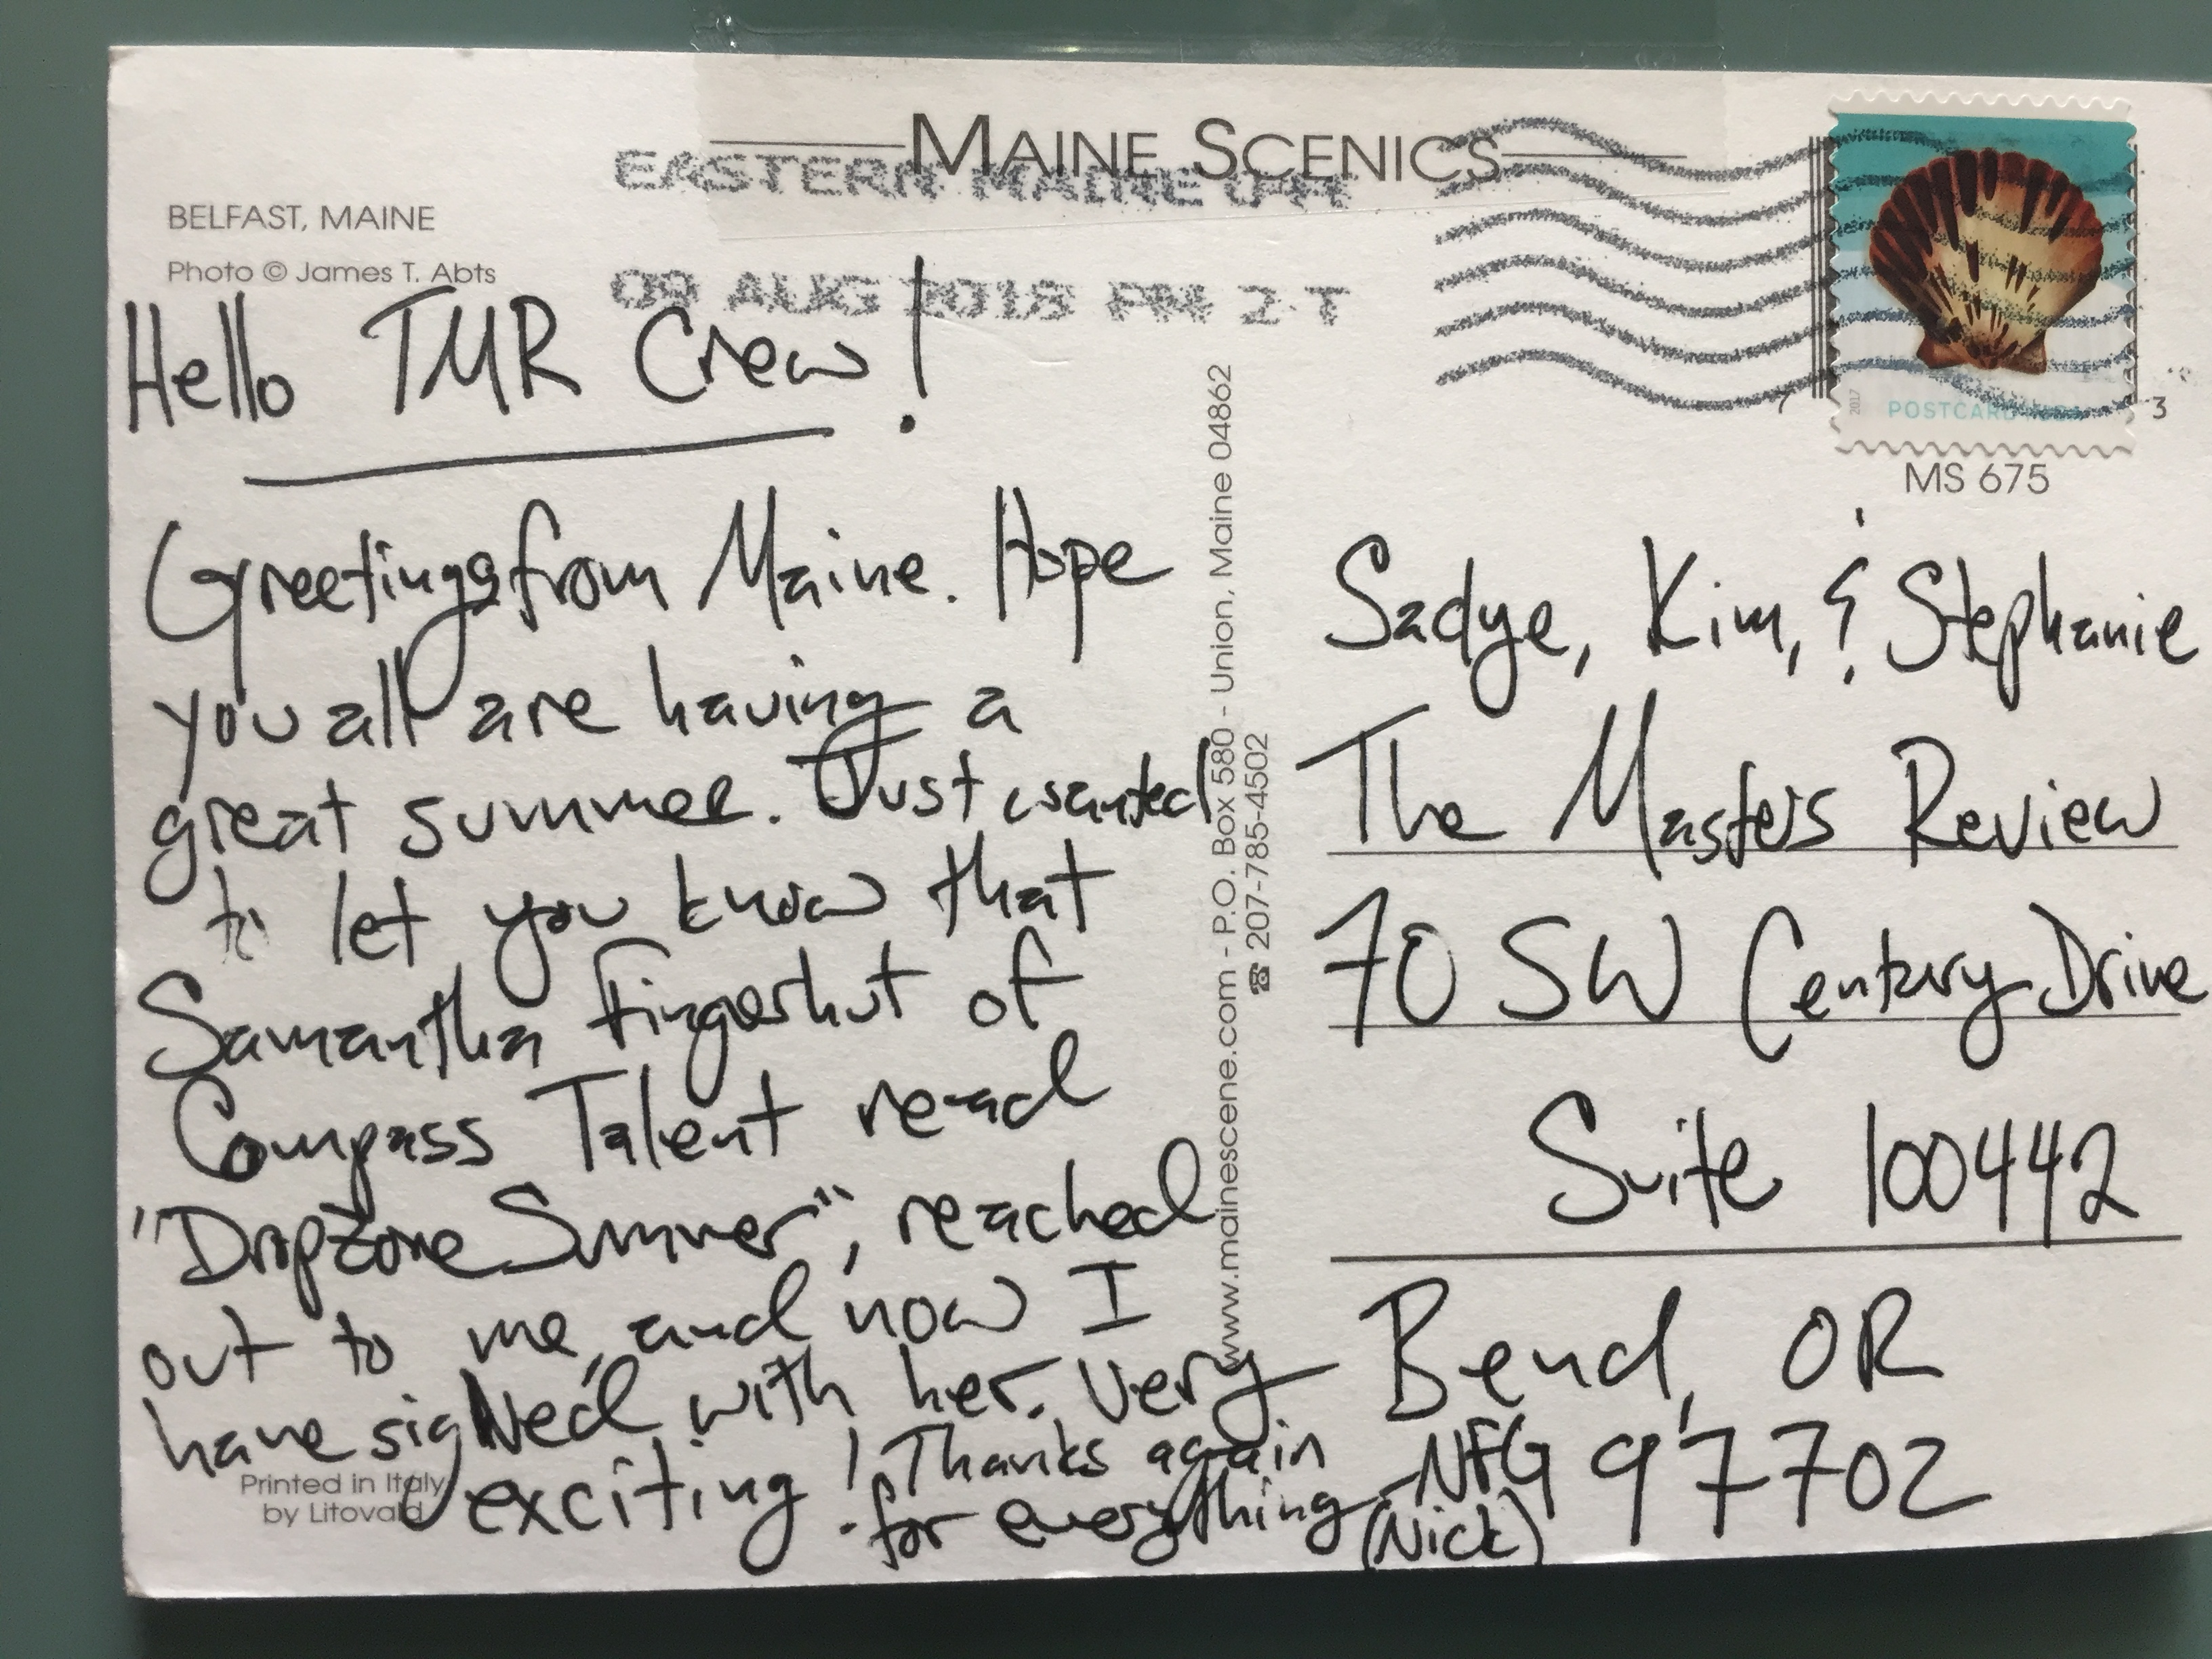 MAINE SCENICS
EASTERN MAINE
09 AUG 2018 PM 2 T
BELFAST, MAINE
Photo © James T. Abts
Hello TMR Crew!
Greetings from Maine. Hope
you all are having a
great summer. Just wanted
to let you know that
Samantha Fingerhut of
Compass Talent read
"Dropzone Summer", reached
out to me, and now I
have sigNed with her. Very
exciting! Thanks again
for everything -NFG
(Nick)
Printed in Italy
by Litovald
www.mainescene.com - P.O. Box 580 - Union, Maine 04862
☎ 207-785-4502
2017
POSTCARD
7
3
MS 675
Sadye, Kim, & Stephanie
The Masters Review
70 SW Century Drive
Suite 100442
Bend, OR
97702